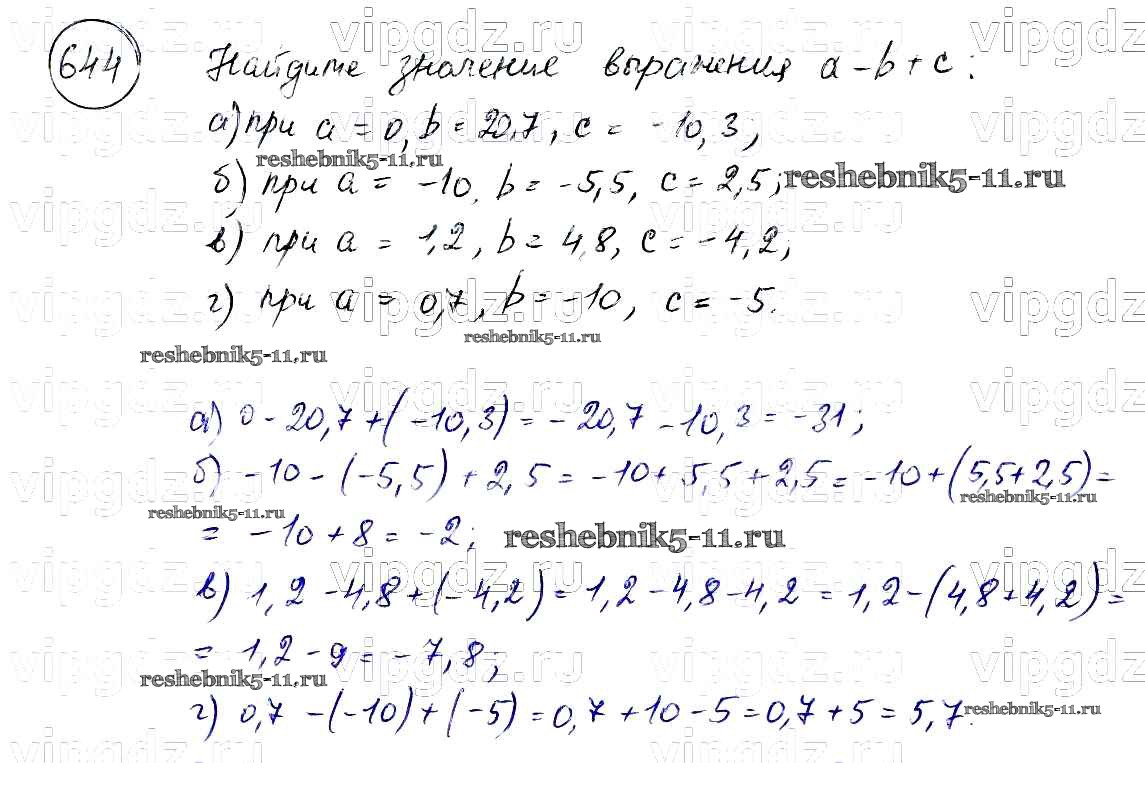 644 Найдите значение выражения a - b + c:
а) при a = 0, b = 20,7, c = -10,3;
reshebnik5-11.ru
б) при a = -10, b = -5,5, c = 2,5;
reshebnik5-11.ru
в) при a = 1,2, b = 4,8, c = -4,2;
г) при a = 0,7, b = -10, c = -5.
reshebnik5-11.ru
reshebnik5-11.ru
а) 0 - 20,7 + (-10,3) = -20,7 - 10,3 = -31;
б) -10 - (-5,5) + 2,5 = -10 + 5,5 + 2,5 = -10 + (5,5 + 2,5) =
reshebnik5-11.ru
reshebnik5-11.ru
= -10 + 8 = -2;
reshebnik5-11.ru
в) 1,2 - 4,8 + (-4,2) = 1,2 - 4,8 - 4,2 = 1,2 - (4,8 + 4,2) =
= 1,2 - 9 = -7,8;
reshebnik5-11.ru
г) 0,7 - (-10) + (-5) = 0,7 + 10 - 5 = 0,7 + 5 = 5,7.
reshebnik5-11.ru
vipgdz.ru